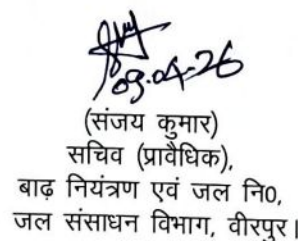 09-04-26
(संजय कुमार)
सचिव (प्रावैधिक),
बाढ़ नियंत्रण एवं जल नि0,
जल संसाधन विभाग, वीरपुर।